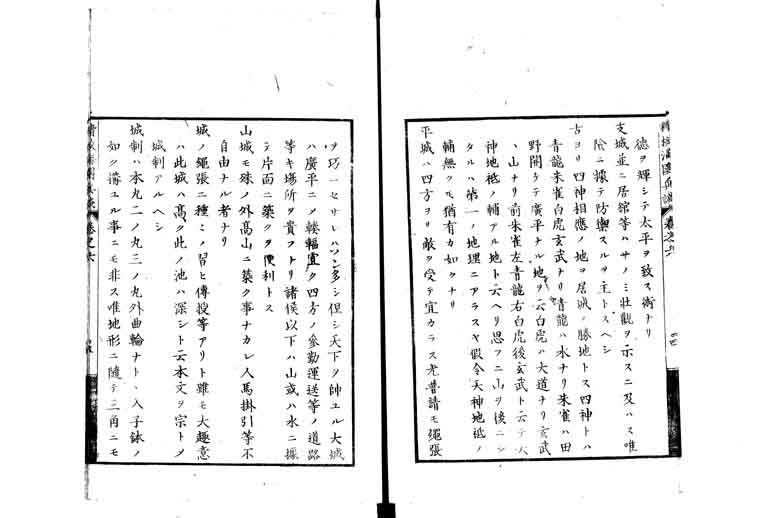 德ヲ輝シテ太平ヲ致ス術ナリ
支城並ニ居館等ハサノミ壯觀ヲ示スニ及ハス唯
險ニ據テ防禦スルヲ主トスヘシ
古ヨリ四神相應ノ地ヲ居城ノ勝地トス四神トハ
青龍朱雀白虎玄武ナリ青龍ハ水ナリ朱雀ハ田
野開ケテ廣平ナル地ヲ云白虎ハ大道ナリ玄武
ハ山ナリ前朱雀左青龍右白虎後玄武ト云テ天
神地祗ノ輔アル地ト云ヘリ思フニ山ヲ後ニシ
タルハ第一ノ地理ニアラスヤ假令天神地祗ノ
輔無クモ猶有カ如クナリ
平城ハ四方ヨリ敵ヲ受テ宜カラス尤普請モ繩張
ヲ巧ニセサレハソン多シ但シ天下ヲ帥ユル大城
ハ廣平ニノ輻宜ク四方ノ參勤運送等ノ道路
等キ場所ヲ貴フトリ諸侯以下ハ山或ハ水ニ據
テ片面ニ築クヲ便利トス
山城モ殊ノ外高山ニ築ク事ナカレ人馬掛引等不
自由ナル者ナリ
城ノ繩張ニ種ミノ習ヒ傳授等アリト雖モ大趣意
ハ此城ハ高ク此ノ池ハ深シト云本文ヲ宗トメ
城制アルヘシ
城制ハ本丸二ノ丸三ノ丸外曲輪ナト、入子鉢ノ
如ク搆ユル事ニモ非ス唯地形ニ隨テ三角ニモ
卷之六